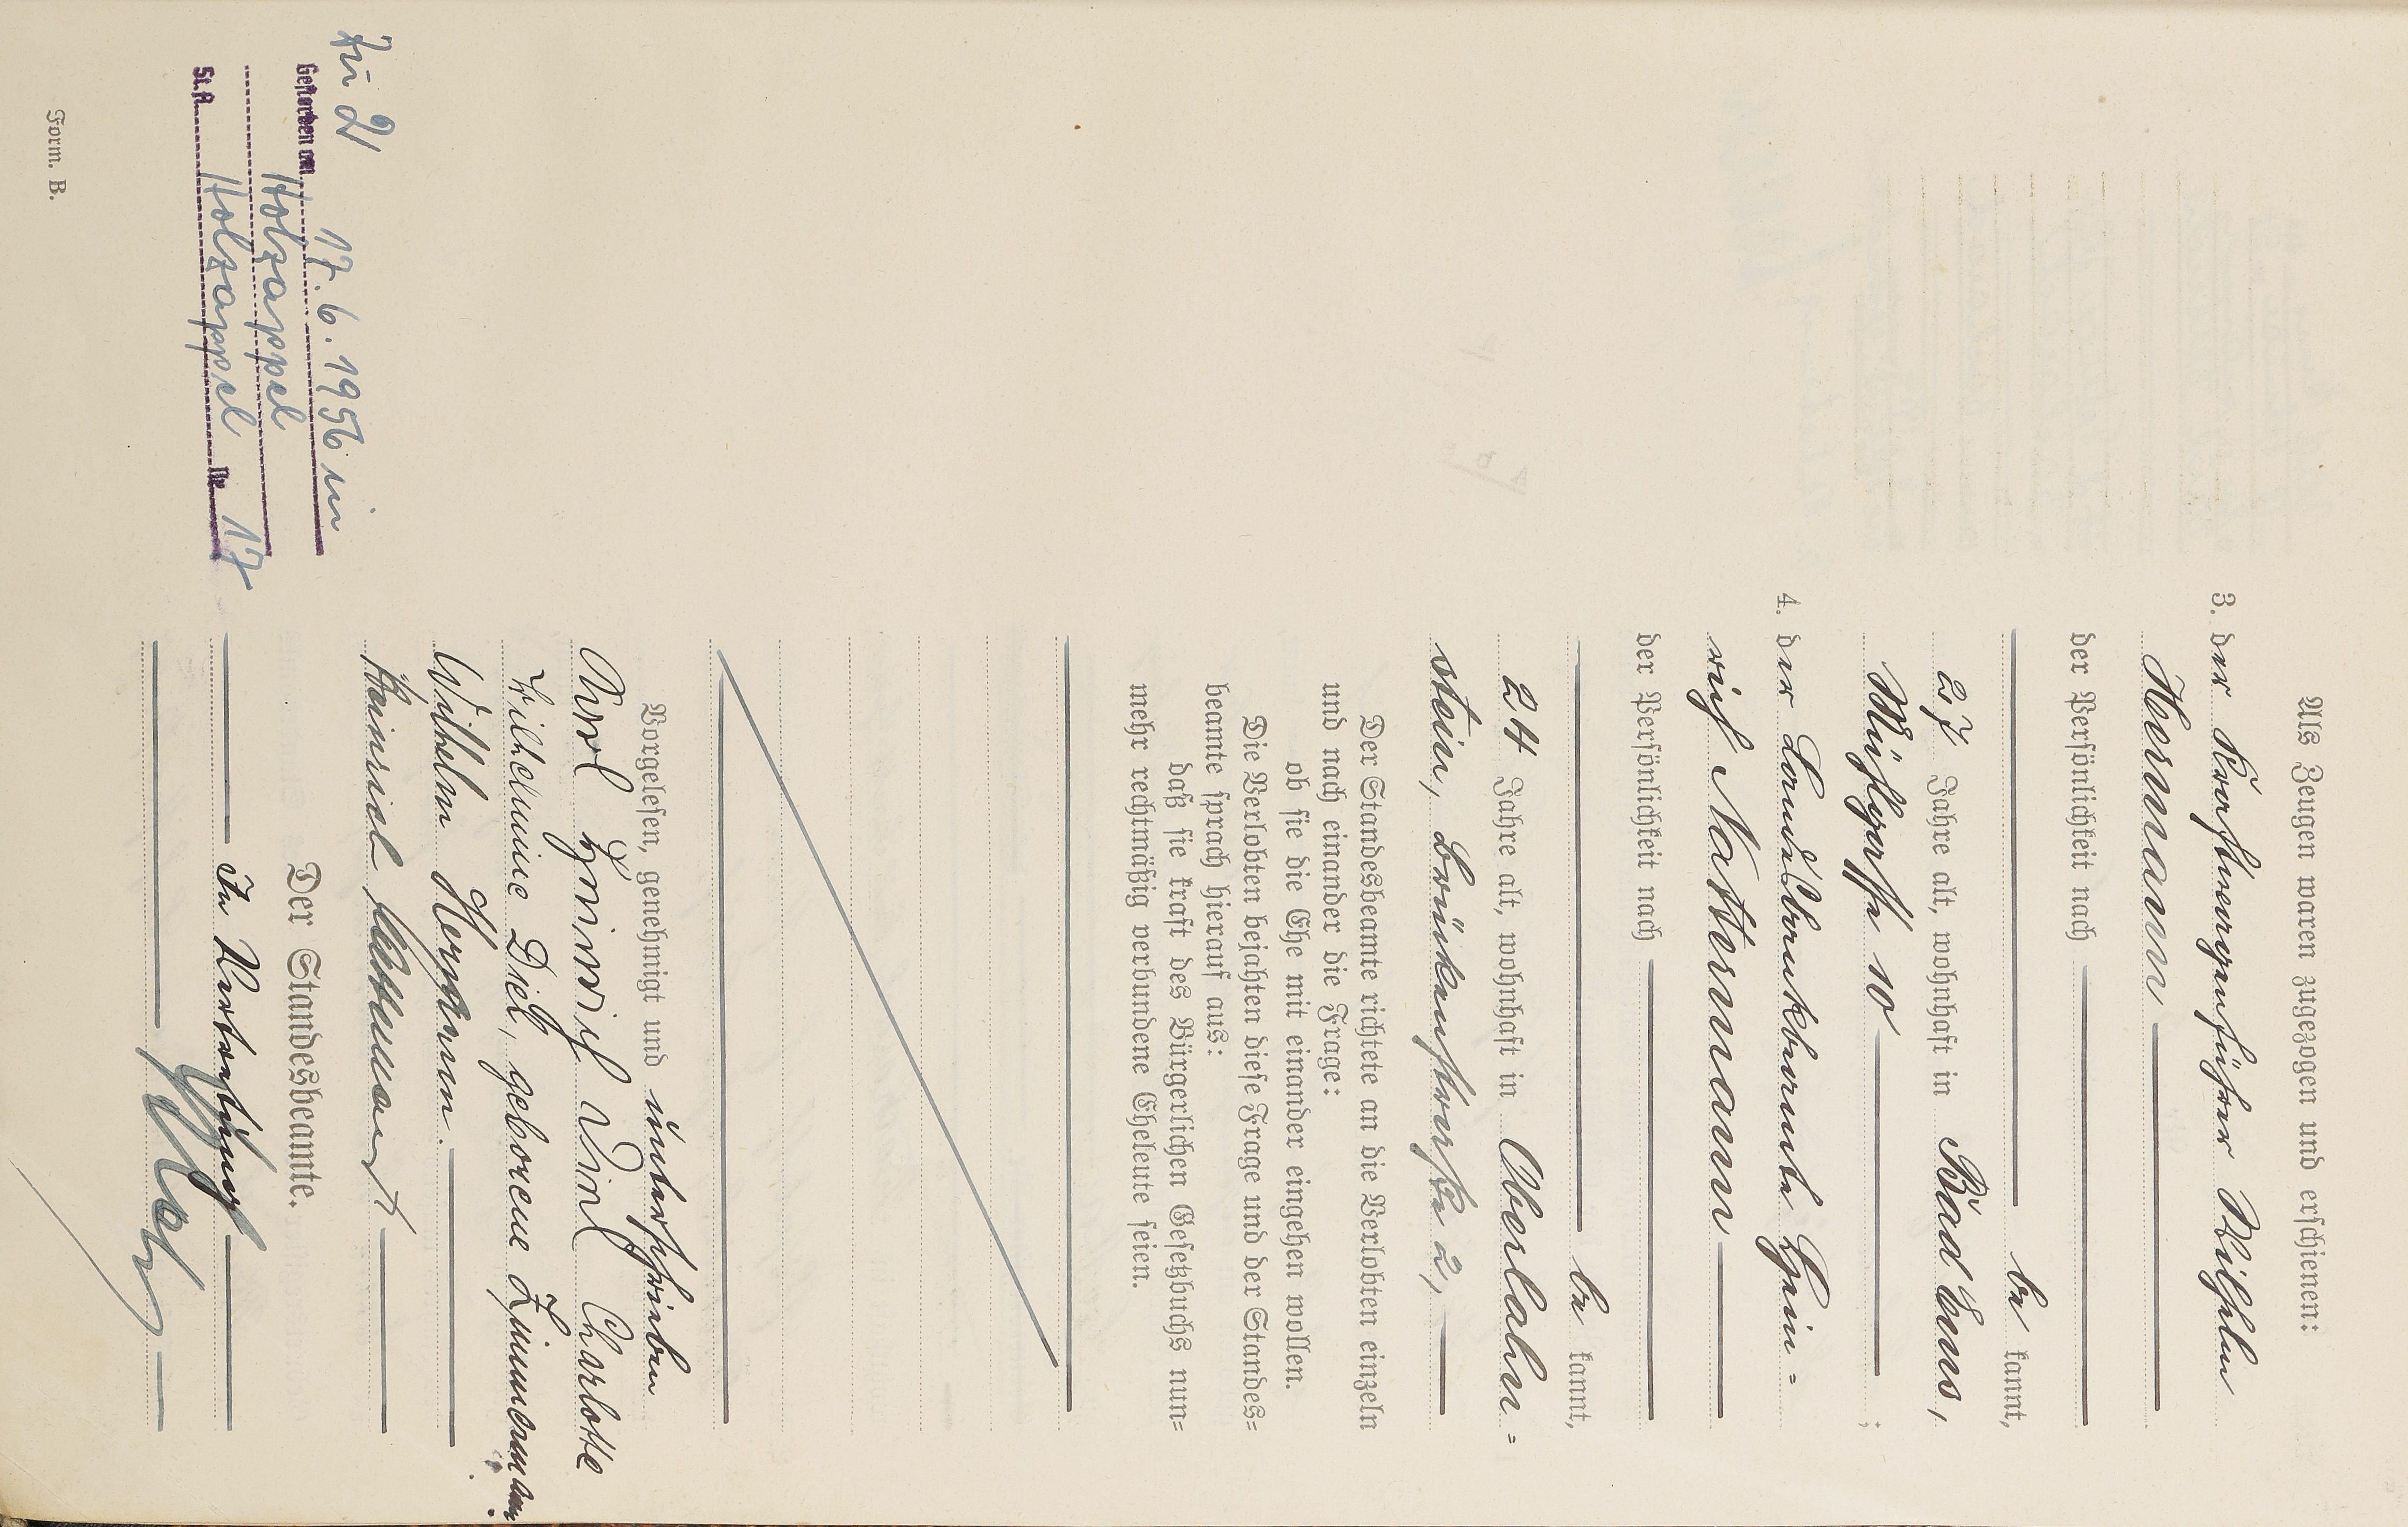 Als Zeugen waren zugezogen und erschienen:
3. der Kraftwagenführer Wilhelm
Hermann
der Persönlichkeit nach
be kannt,
27 Jahre alt, wohnhaft in Bad Ems,
10 ;
4. der Landesbankbeamte Hein=
rich Nattermann
der Persönlichkeit nach
be kannt,
24 Jahre alt, wohnhaft in Oberlahn=
stein, 2,
Der Standesbeamte richtete an die Verlobten einzeln
und nach einander die Frage:
ob sie die Ehe mit einander eingehen wollen.
Die Verlobten bejahten diese Frage und der Standes=
beamte sprach hierauf aus:
daß sie kraft des Bürgerlichen Gesetzbuchs nun=
mehr rechtmäßig verbundene Eheleute seien.
Vorgelesen, genehmigt und unterschrieben
Karl Heinrich Diel Charlotte
Wilhelmine Diel, geborene Zimmermann.
Wilhelm Hermann.
Heinrich Nattermann
Der Standesbeamte.
In Vertretung
Zu 2)
Gestorben am 17.6.1956 in
Holzappel
St.A. Holzappel Nr. 17
Form. B.